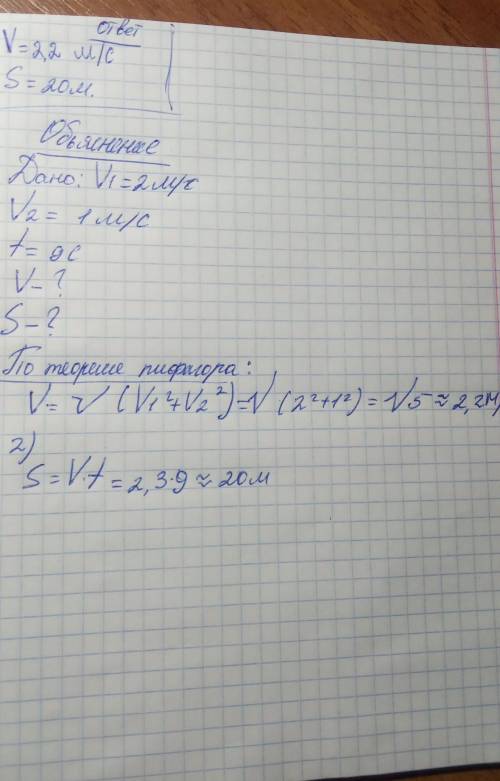 Ответ
V=2,2 м/с
S=20м.
Обьяснение
Дано: V1=2м/с
V2= 1м/с
t= 9с
V-?
S-?
По теореме пифагора:
V= √(V1²+V2²)=√(2²+1²)=√5≈2,2м/
2)
S=V·t=2,3·9≈20м